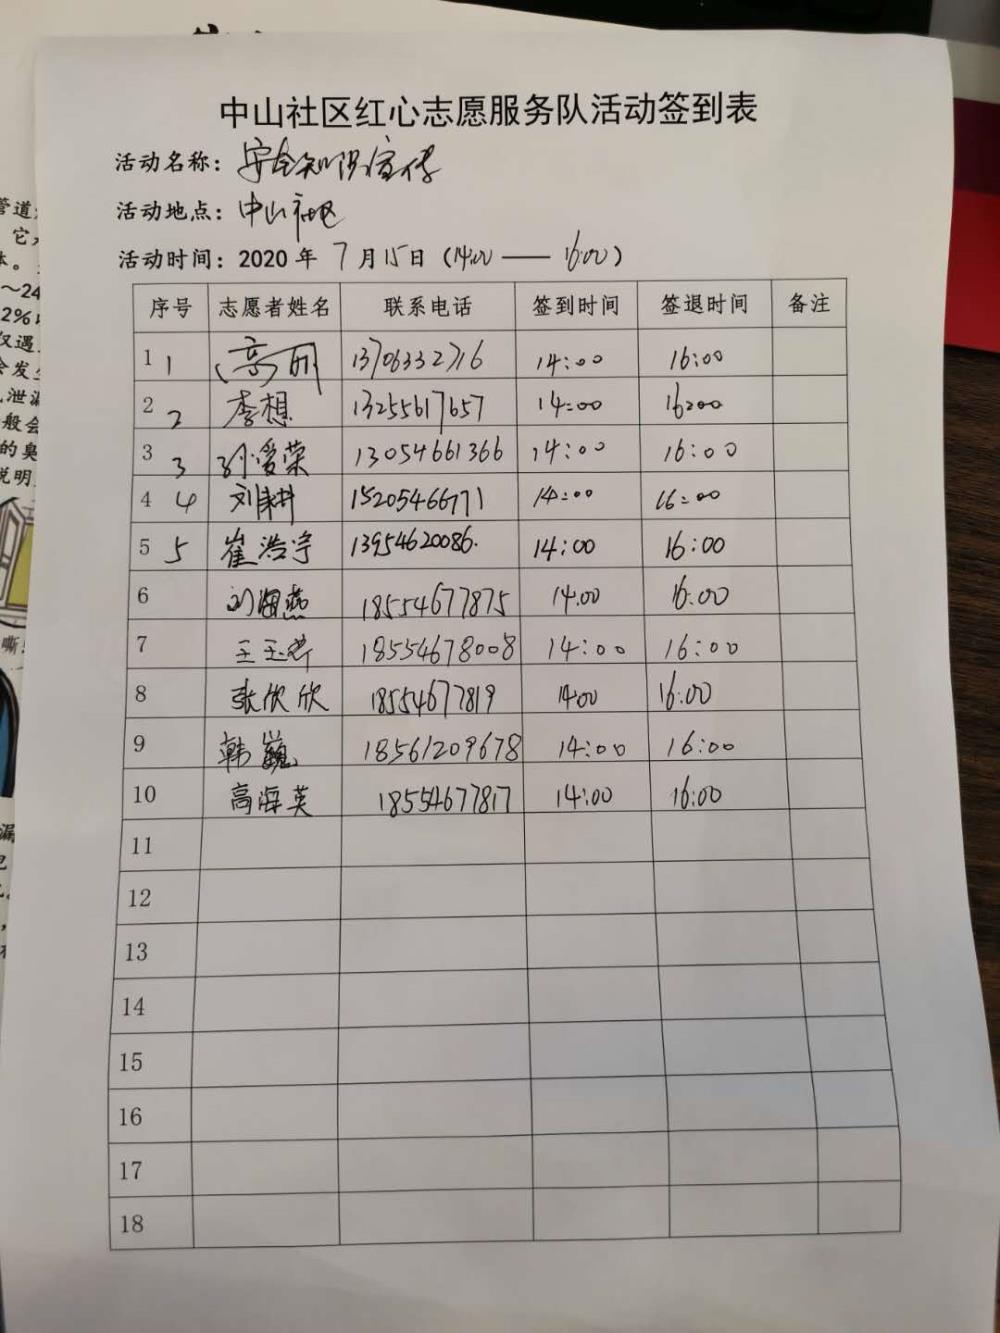 中山社区红心志愿服务队活动签到表
活动名称：安全知识宣传
活动地点：中山社区
活动时间：2020 年 7 月 15 日（14:00 —— 16:00）
序号 志愿者姓名 联系电话 签到时间 签退时间 备注
1 1 高丽 13706332716 14:00 16:00
2 2 李想 13255617657 14:00 16:00
3 3 孙爱荣 13054661366 14:00 16:00
4 4 刘耕 15205466771 14:00 16:00
5 5 崔浩宇 13954620086. 14:00 16:00
6 刘海燕 18554677875 14:00 16:00
7 王玉 18554678008 14:00 16:00
8 张欣欣 18554677819 14:00 16:00
9 韩巍 18561209678 14:00 16:00
10 高海英 18554677817 14:00 16:00
11
12
13
14
15
16
17
18
管道
它
体。
～24
2%
仅遇
会发生
泄漏
般会
的臭
说明
嘶
漏